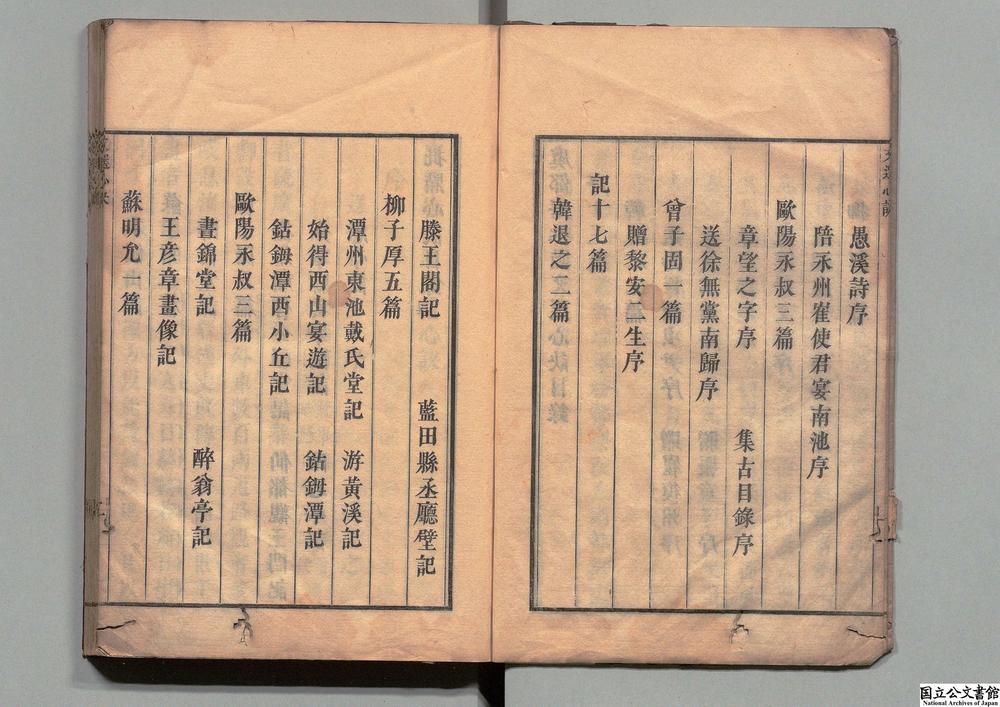 愚溪詩序
陪永州崔使君宴南池序
歐陽永叔三篇
章望之字序　集古目錄序
送徐無黨南歸序
曾子固一篇
贈黎安二生序
記十七篇
韓退之二篇
滕王閣記　藍田縣丞廳壁記
柳子厚五篇
潭州東池戴氏堂記　游黃溪記
始得西山宴遊記　鈷鉧潭記
鈷鉧潭西小丘記
歐陽永叔三篇
晝錦堂記　醉翁亭記
王彥章畫像記
蘇明允一篇
国立公文書館
National Archives of Japan